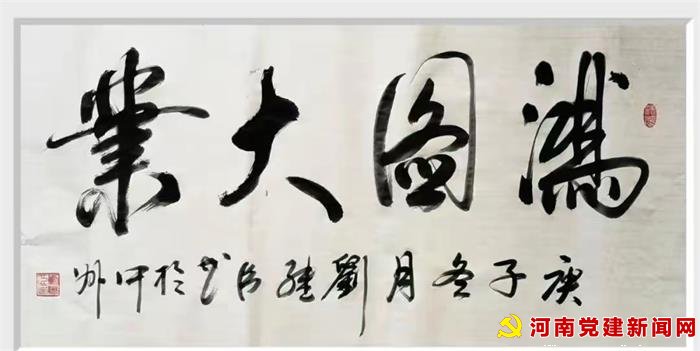 鴻圖大業
庚子冬月劉继书於中州
河南党建新闻网